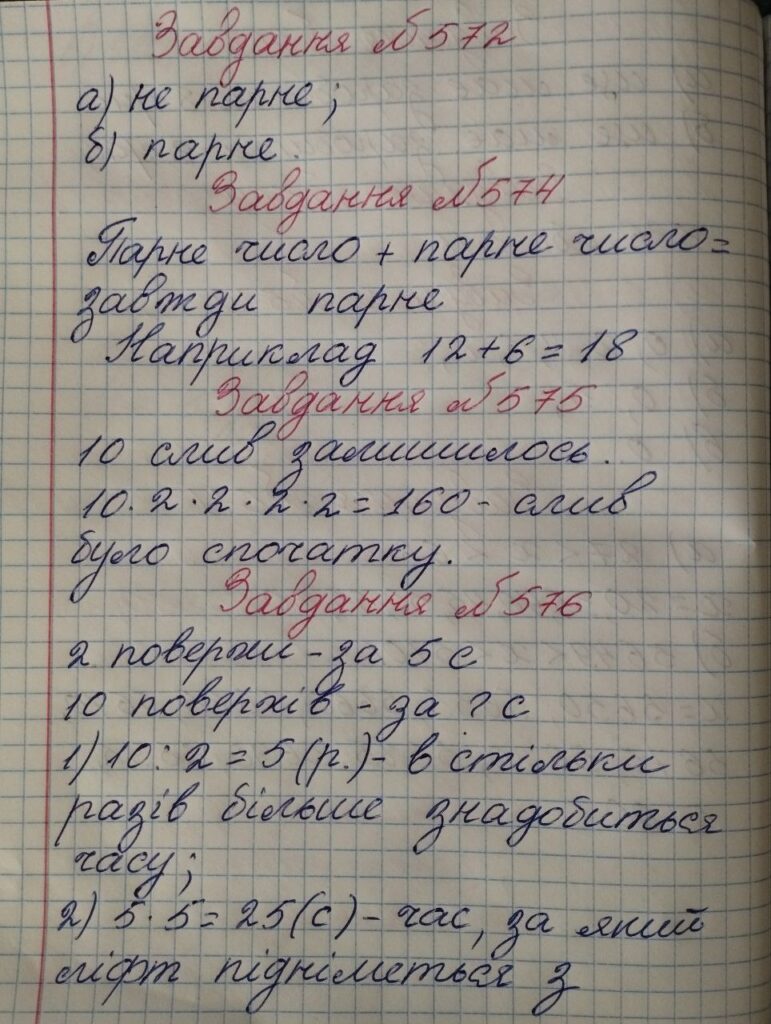 Завдання №572
а) не парне;
б) парне.
Завдання №574
Парне число + парне число=
завжди парне
Наприклад 12+6=18
Завдання №575
10 слив залишилось.
10·2·2·2·2=160- слив
було спочатку.
Завдання №576
2 поверхи - за 5 с
10 поверхів - за ? с
1) 10:2=5(р.)- в стільки
разів більше знадобиться
часу;
2) 5·5=25(с)- час, за який
ліфт підніметься з